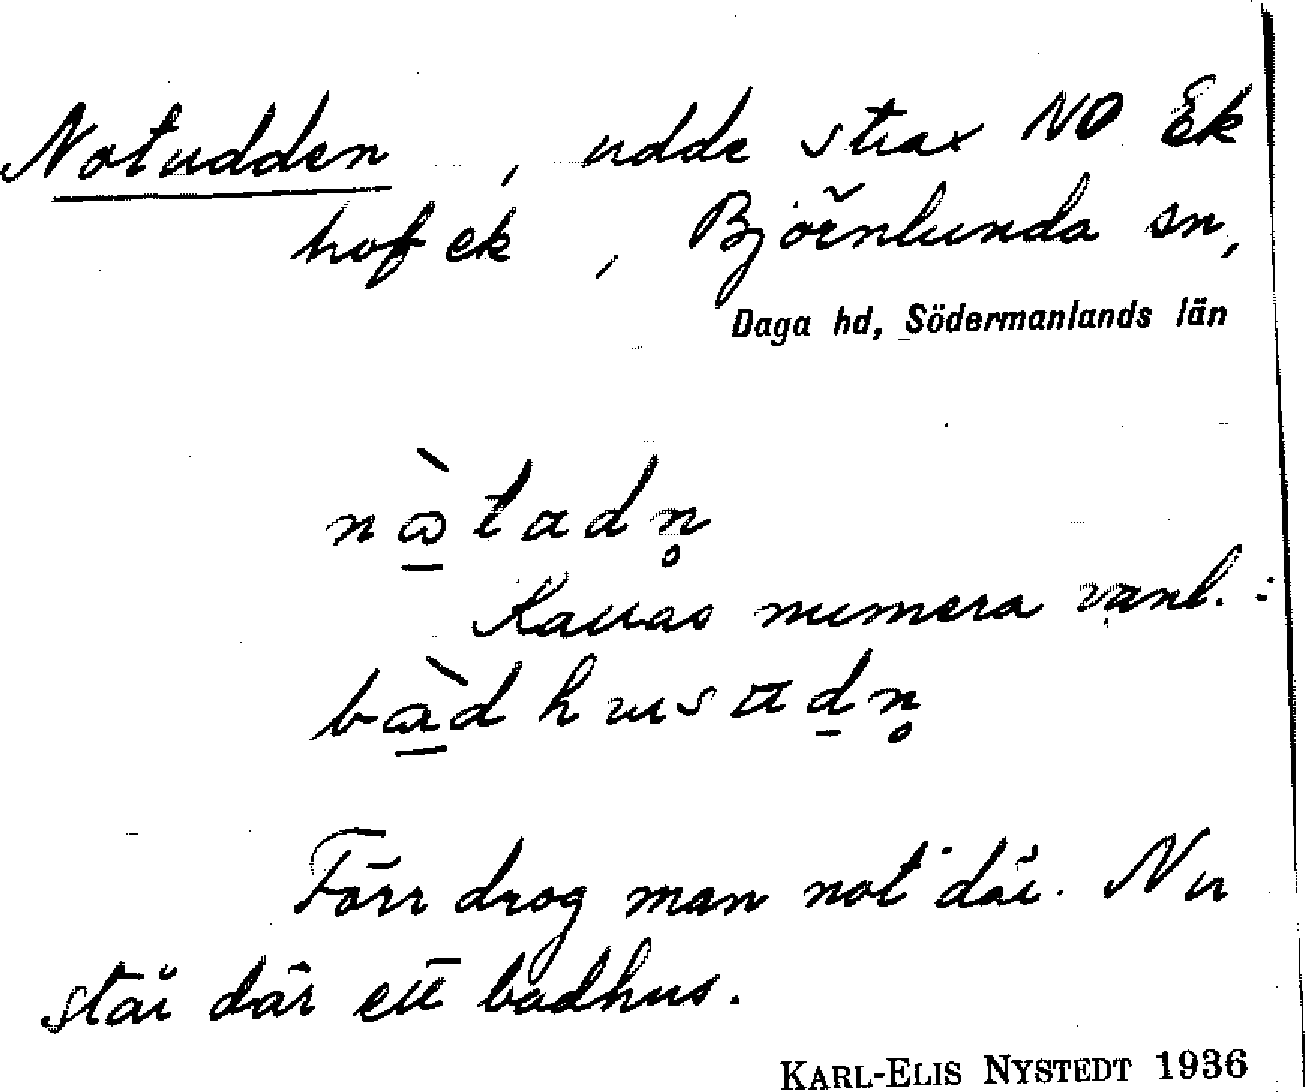 Notudden, udde strax NO Ek
hof ek, Björnlunda sn,
Daga hd, Södermanlands län
Kallas numera vanl. :
Förr drog man not där. Nu
står där ett badhus.
KARL-ELIS NYSTEDT 1936